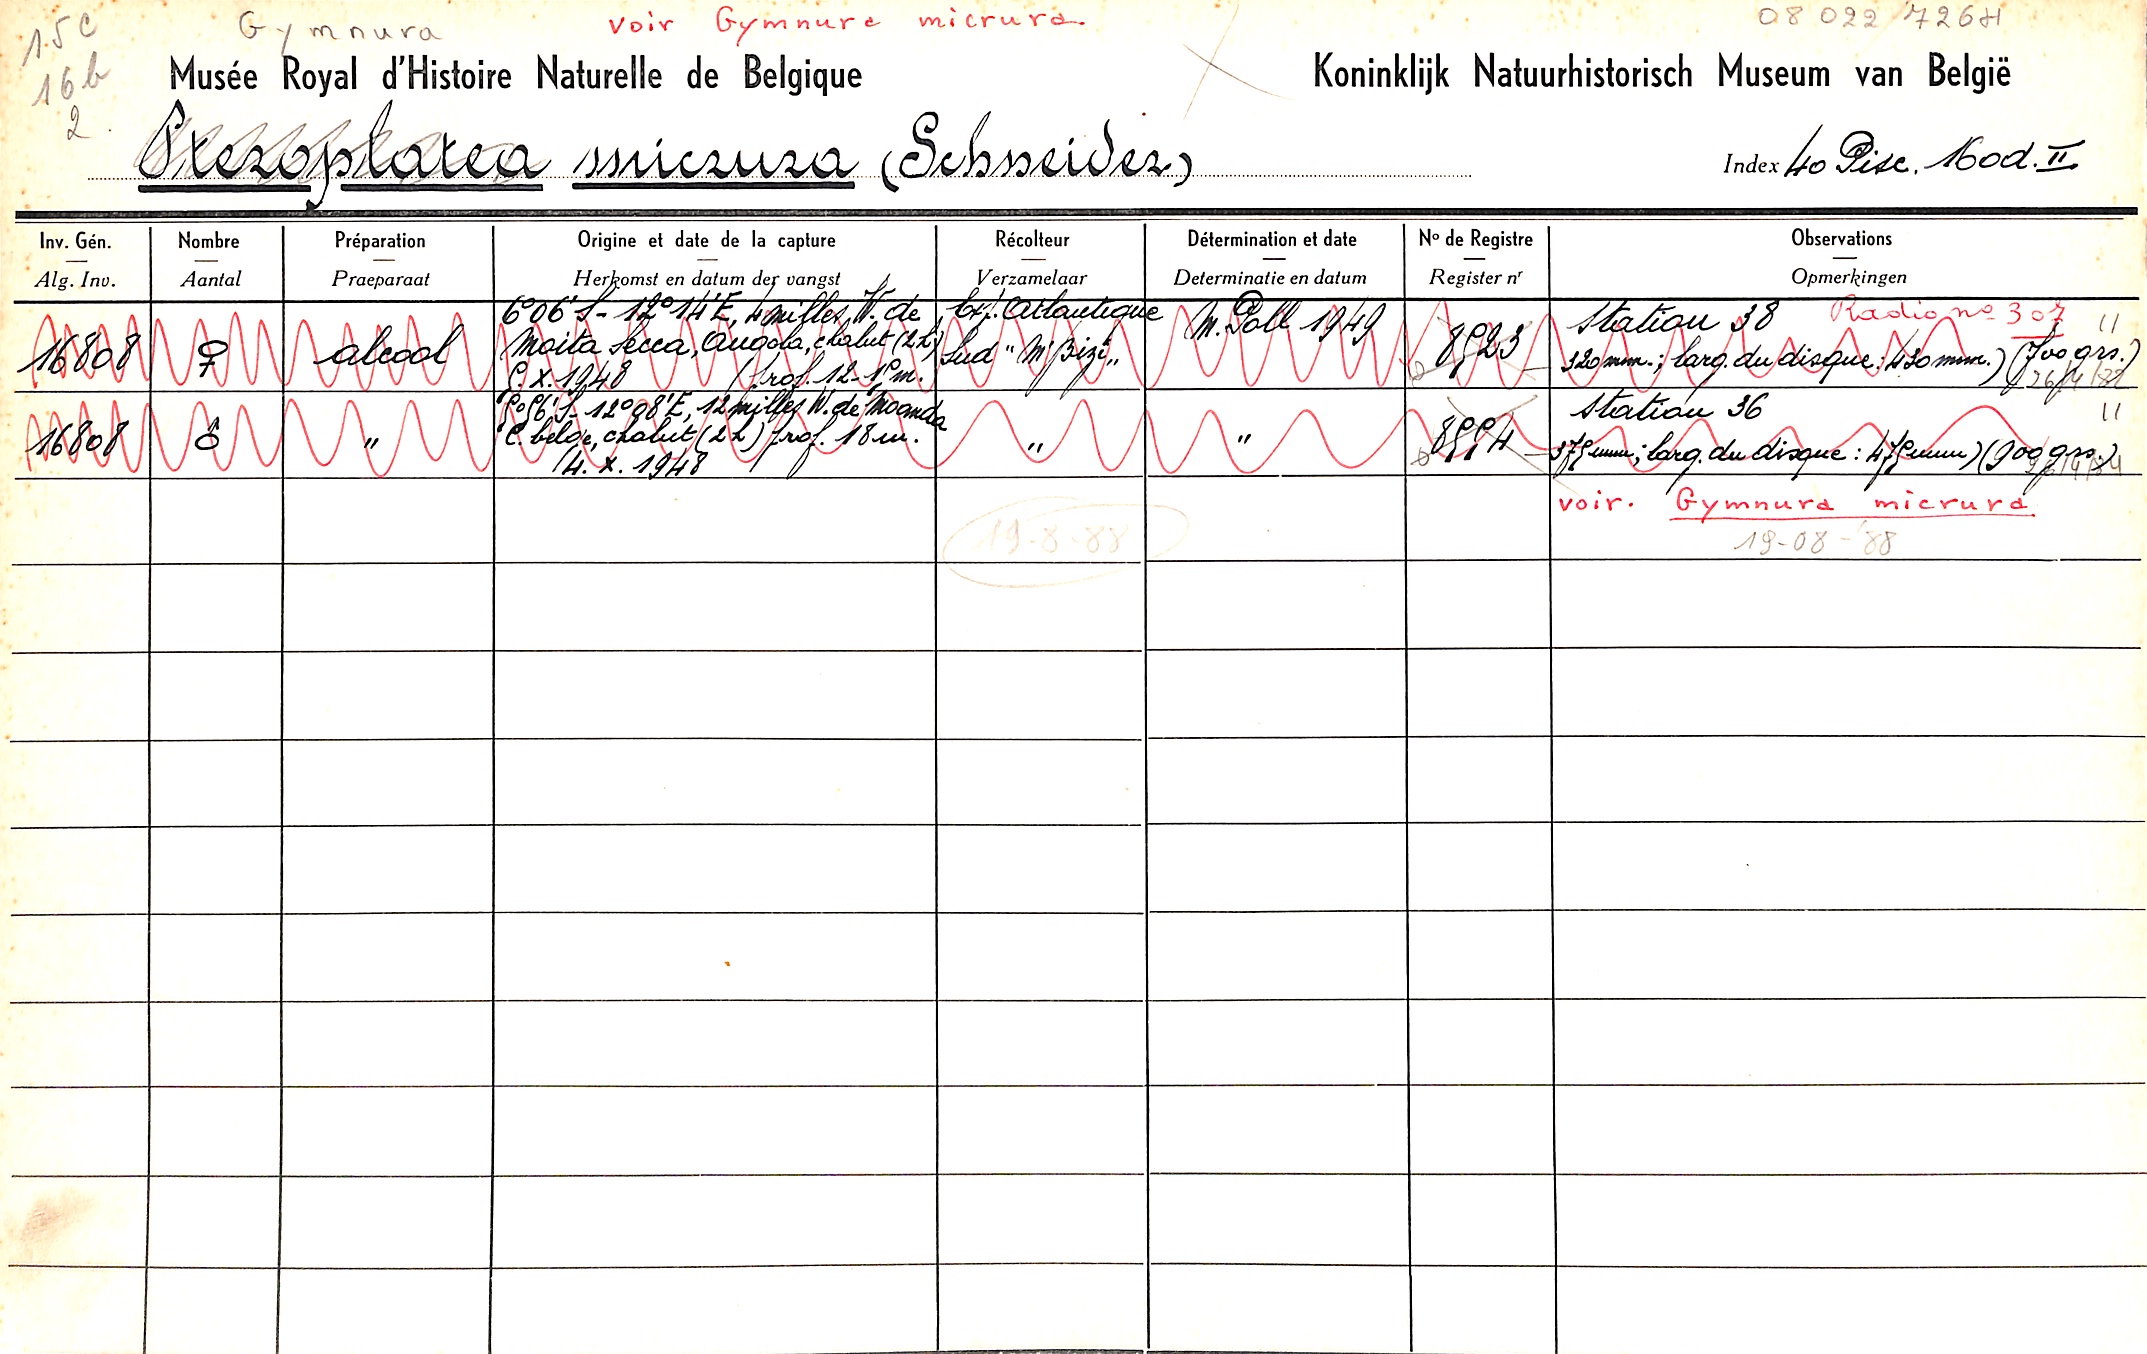 15c
16b
2.
Gymnura
voir Gymnura micrura.
08 022 726H
Musée Royal d'Histoire Naturelle de Belgique
Koninklijk Natuurhistorisch Museum van België
Pteroplatea micrura (Schneider)
Index 40 Pisc. 16od.II
Inv. Gén.
Alg. Inv.
Nombre
Aantal
Préparation
Praeparaat
Origine et date de la capture
Herkomst en datum der vangst
Récolteur
Verzamelaar
Détermination et date
Determinatie en datum
No de Registre
Register nr
Observations
Opmerkingen
16808
♀
alcool
6°06' S - 12°14' E, 4 milles W. de
Moita Secca, Angola, chalut (2h)
5.X.1948 (prof. 12-15m.
Exp. Atlantique
Sud "M'Bizi"
M. Poll 1949
8523
Station 38 Radio no 307 11
320mm.; larg. du disque: 430mm.) (700 grs.)
16808
♂
"
5°56' S - 12°08' E, 12 milles W. de Moanda
C. belge, chalut (2h) prof. 18m.
4.X.1948
"
"
8554
Station 36 11
375mm; larg. du disque: 475mm) (900grs.)
voir. Gymnura micrura
19-8-88
19-08-'88